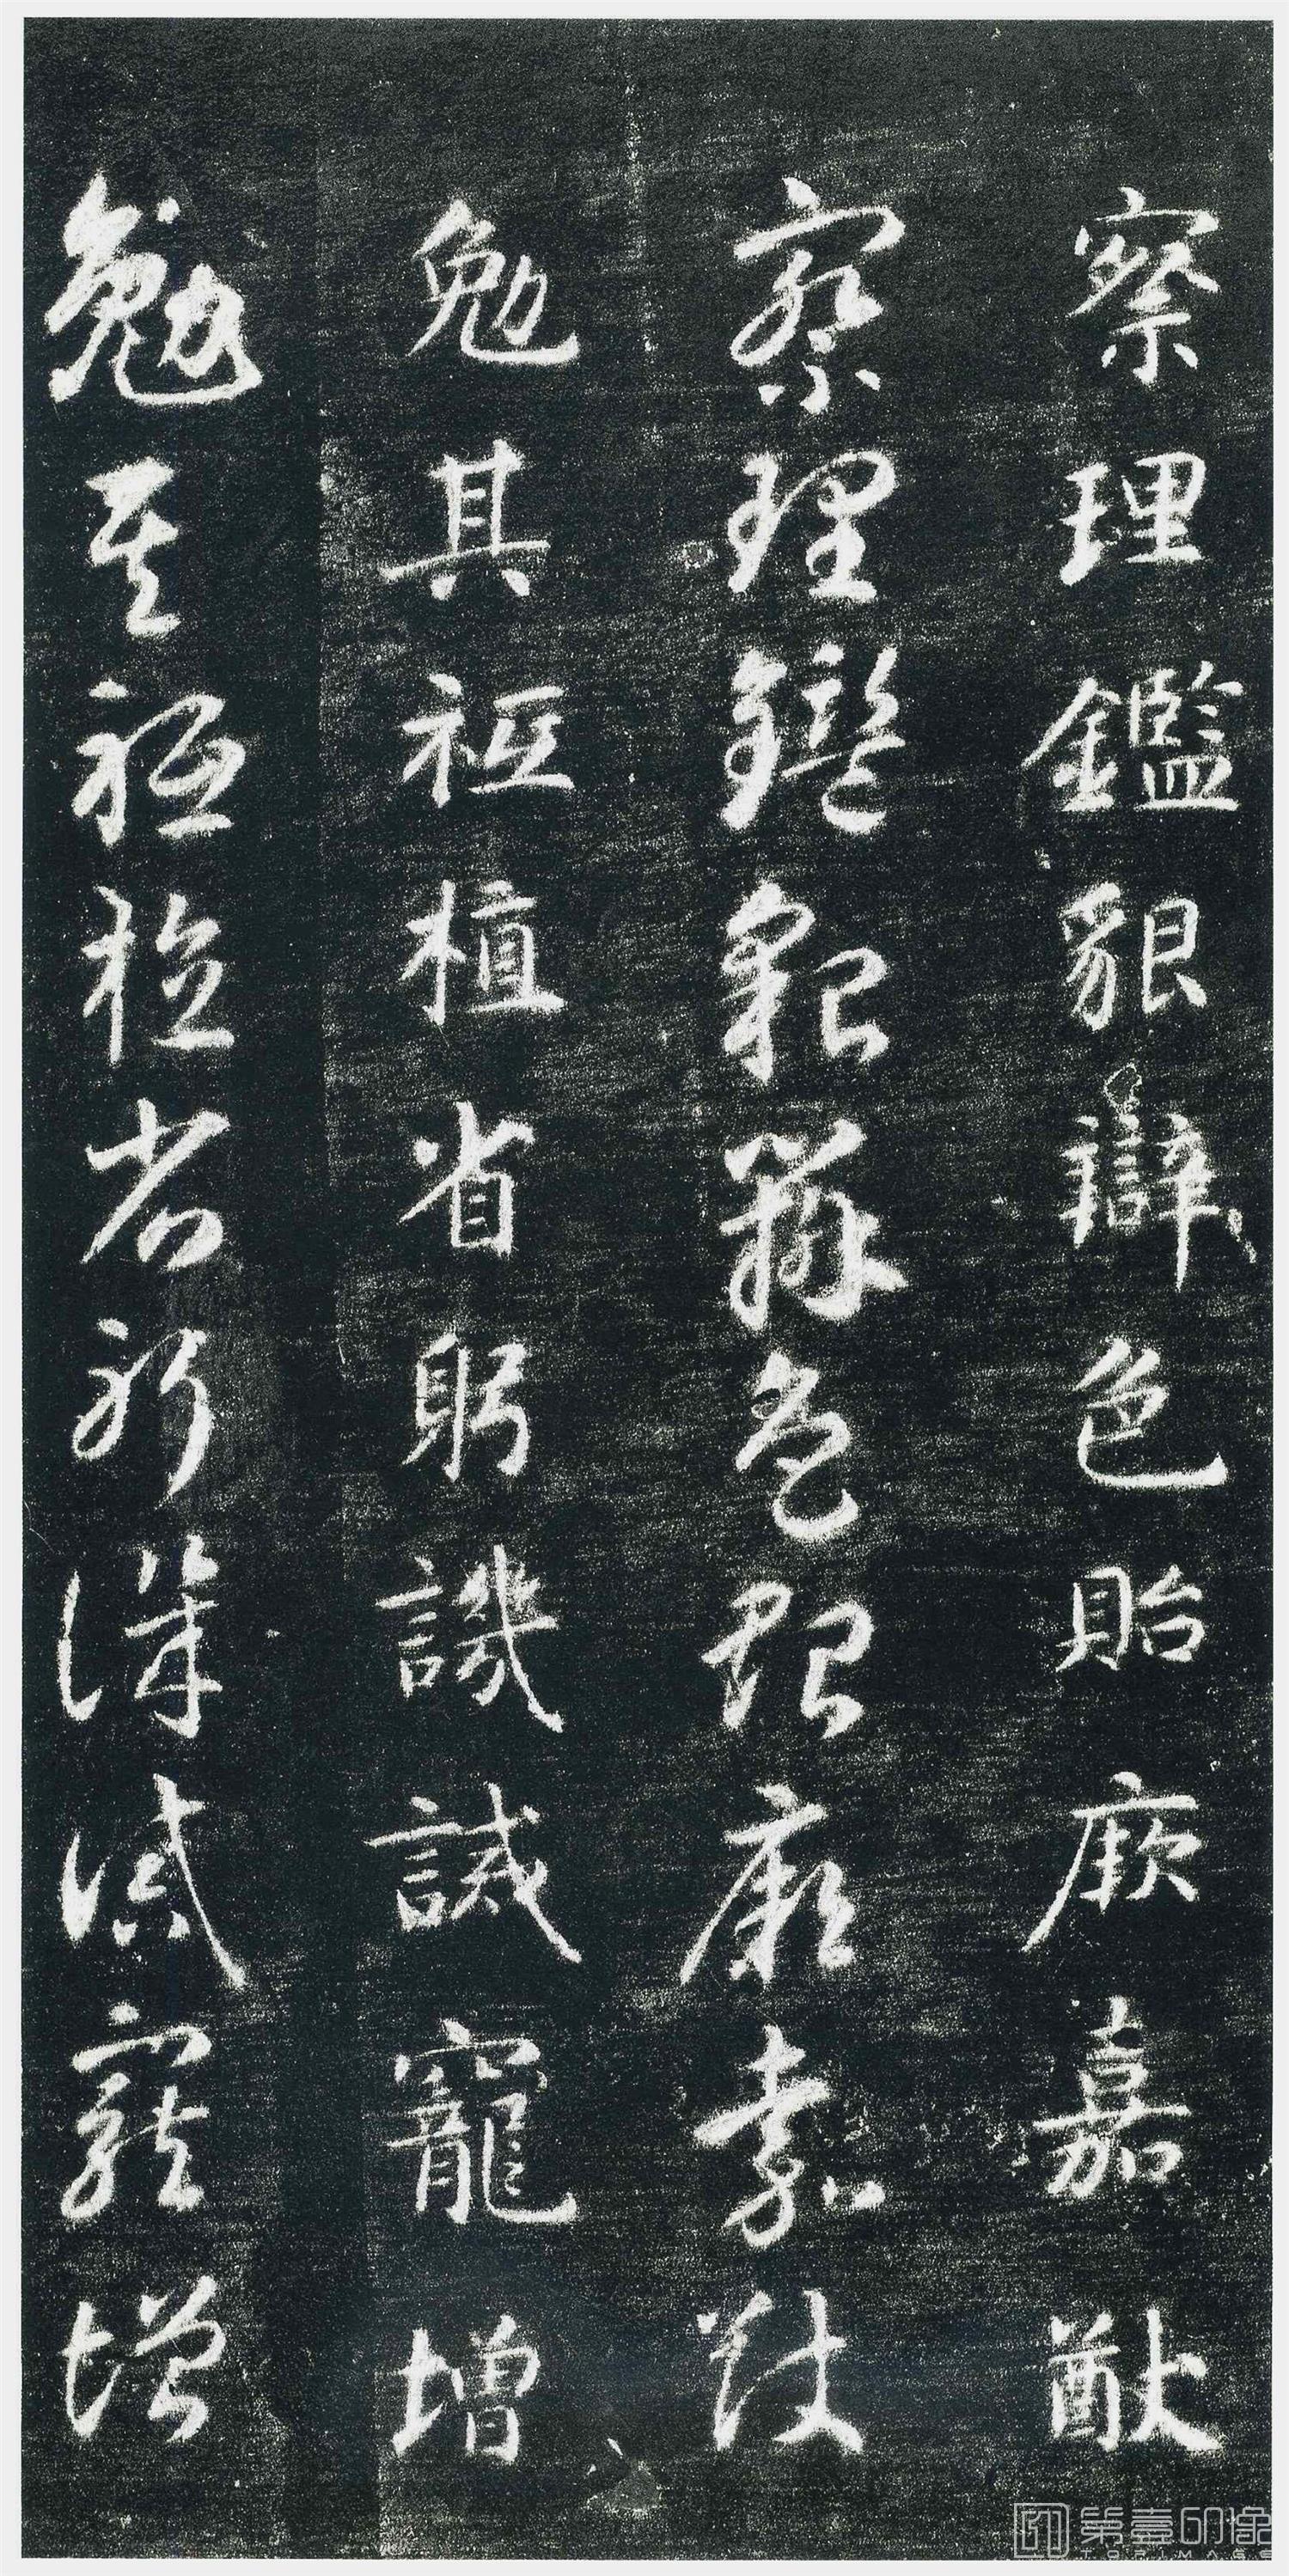 察理鑑貌辯色貽厥嘉猷
察理鑑貌辯色貽厥嘉猷
勉其祗植省躬譏誡寵增
勉其祗植省躬譏誡寵增
第壹印像
TOPIMAGE